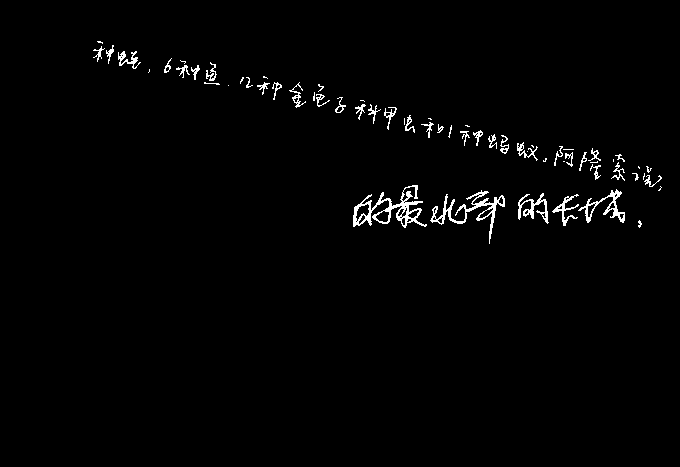 种蛙，6种鱼，12种金龟子科甲虫和1种蚂蚁。阿隆索说，
的最北部的长城，